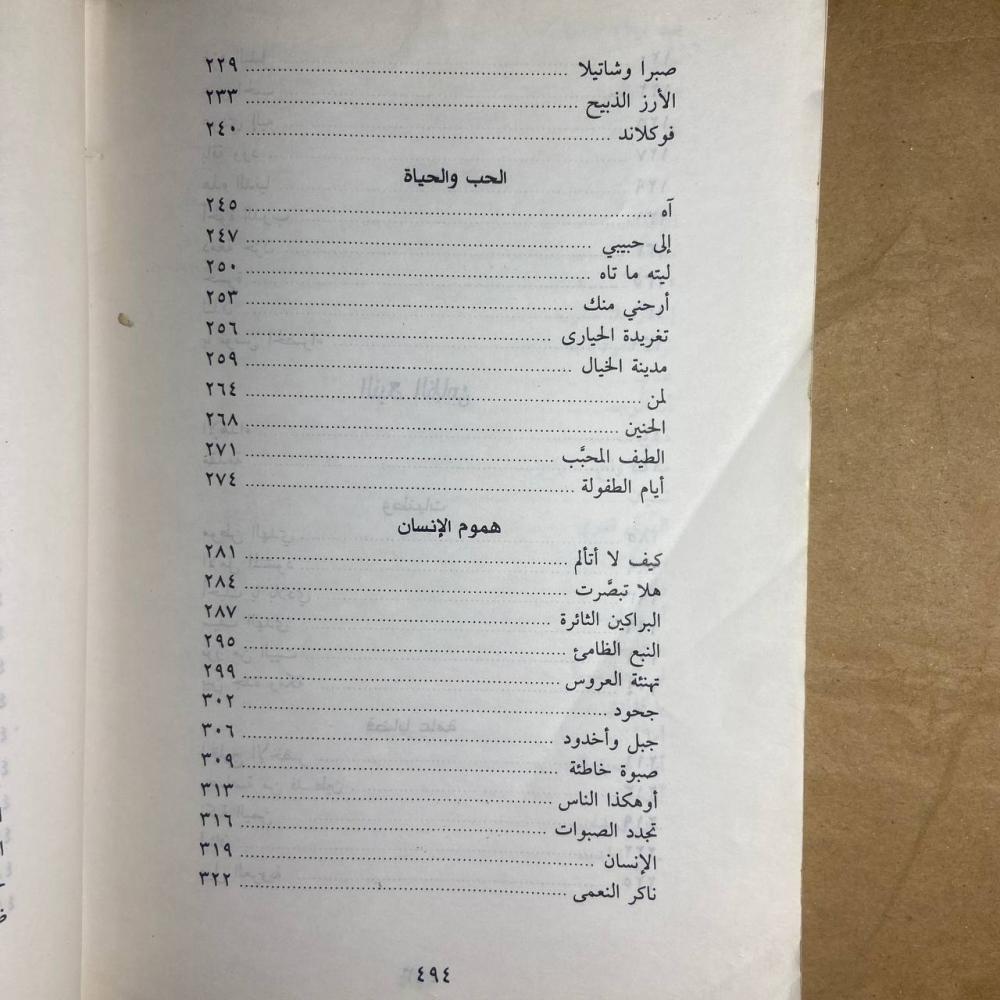 صبرا وشاتيلا ........ ٢٢٩
الأرز الذبيح ........ ٢٣٣
فوكلاند ........ ٢٤٠
الحب والحياة
آه ........ ٢٤٥
إلى حبيبي ........ ٢٤٧
ليته ما تاه ........ ٢٥٠
أرحني منك ........ ٢٥٣
تغريدة الحيارى ........ ٢٥٦
مدينة الخيال ........ ٢٥٩
لمن ........ ٢٦٤
الحنين ........ ٢٦٨
الطيف المحبَّب ........ ٢٧١
أيام الطفولة ........ ٢٧٤
هموم الإنسان
كيف لا أتألم ........ ٢٨١
هلا تبصَّرت ........ ٢٨٤
البراكين الثائرة ........ ٢٨٧
النبع الظامئ ........ ٢٩٥
تهنئة العروس ........ ٢٩٩
جحود ........ ٣٠٢
جبل وأخدود ........ ٣٠٦
صبوة خاطئة ........ ٣٠٩
أوهكذا الناس ........ ٣١٣
تجدد الصبوات ........ ٣١٦
الإنسان ........ ٣١٩
ناكر النعمى ........ ٣٢٢
٤٩٤